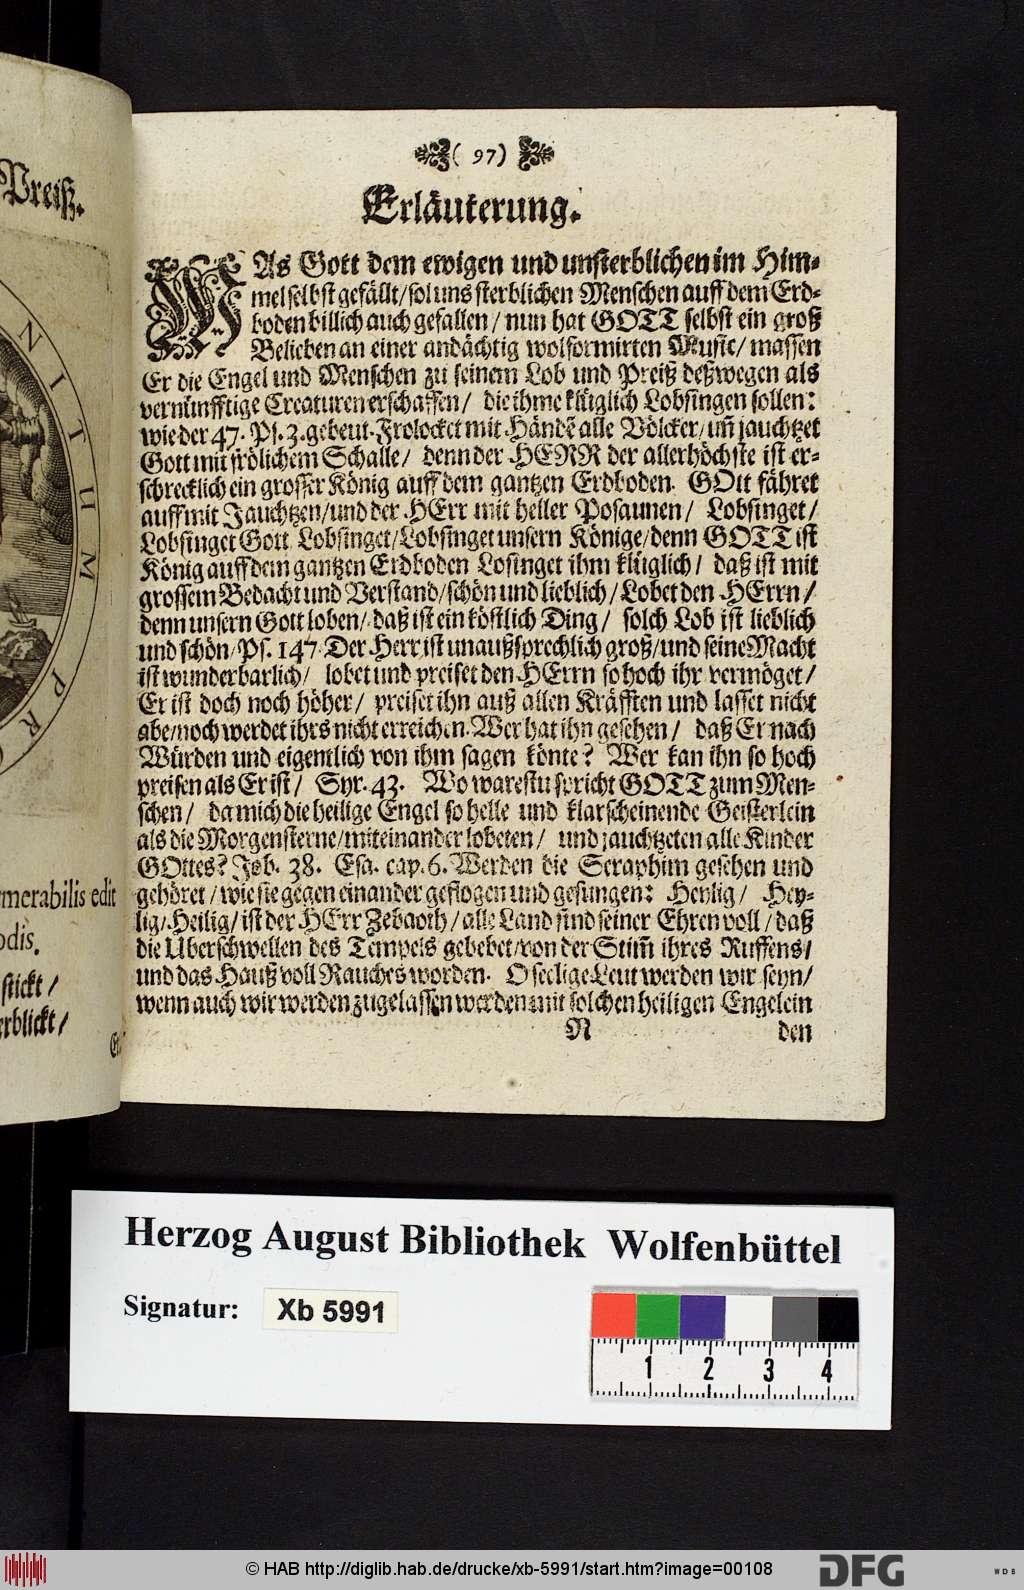 Preiß.
N I T U M P R O
merabilis edit
odis.
stickt /
erblickt /
( 97 )
Erläuterung.
WAs Gott dem ewigen und unsterblichen im Him-
mel selbst gefällt / sol uns sterblichen Menschen auff dem Erd-
boden billich auch gefallen / nun hat GOTT selbst ein groß
Belieben an einer andächtig wolformirten Music / massen
Er die Engel und Menschen zu seinem Lob und Preiß deßwegen als
vernünfftige Creaturen erschaffen / die ihme klüglich Lobsingen sollen:
wie der 47. Ps. 3. gebeut. Frolocket mit Händẽ alle Völcker / uñ jauchtzet
Gott mit frölichem Schalle / denn der HERR der allerhöchste ist er-
schrecklich ein grosser König auff dem gantzen Erdboden. GOtt fähret
auff mit Jauchtzen / und der HErr mit heller Posaunen / Lobsinget /
Lobsinget Gott Lobsinget / Lobsinget unsern Könige / denn GOTT ist
König auff dem gantzen Erdboden Losinget ihm klüglich / daß ist mit
grossem Bedacht und Verstand / schön und lieblich / Lobet den HErrn /
denn unsern Gott loben / daß ist ein köstlich Ding / solch Lob ist lieblich
und schön / Ps. 147. Der Herr ist unaußsprechlich groß / und seine Macht
ist wunderbarlich / lobet und preiset den HErrn so hoch ihr vermöget /
Er ist doch noch höher / preiset ihn auß allen Kräfften und lasset nicht
abe / noch werdet ihrs nicht erreichen. Wer hat ihn gesehen / daß Er nach
Würden und eigentlich von ihm sagen könte? Wer kan ihn so hoch
preisen als Er ist / Syr. 43. Wo warestu spricht GOTT zum Men-
schen / da mich die heilige Engel so helle und klarscheinende Geisterlein
als die Morgensterne / miteinander lobeten / und jauchtzeten alle Kinder
GOttes? Job. 38. Esa. cap. 6. Werden die Seraphim gesehen und
gehöret / wie sie gegen einander geflogen und gesungen: Heylig / Hey-
lig / Heilig / ist der HErr Zebaoth / alle Land sind seiner Ehren voll / daß
die Uberschwellen des Tempels gebebet / von der Stim̃ ihres Ruffens /
und das Hauß voll Rauches worden. O seelige Leut werden wir seyn /
wenn auch wir werden zugelassen werden mit solchen heiligen Engelein
N den
Herzog August Bibliothek Wolfenbüttel
Signatur: Xb 5991
1 2 3 4
© HAB http://diglib.hab.de/drucke/xb-5991/start.htm?image=00108
DFG
WDB